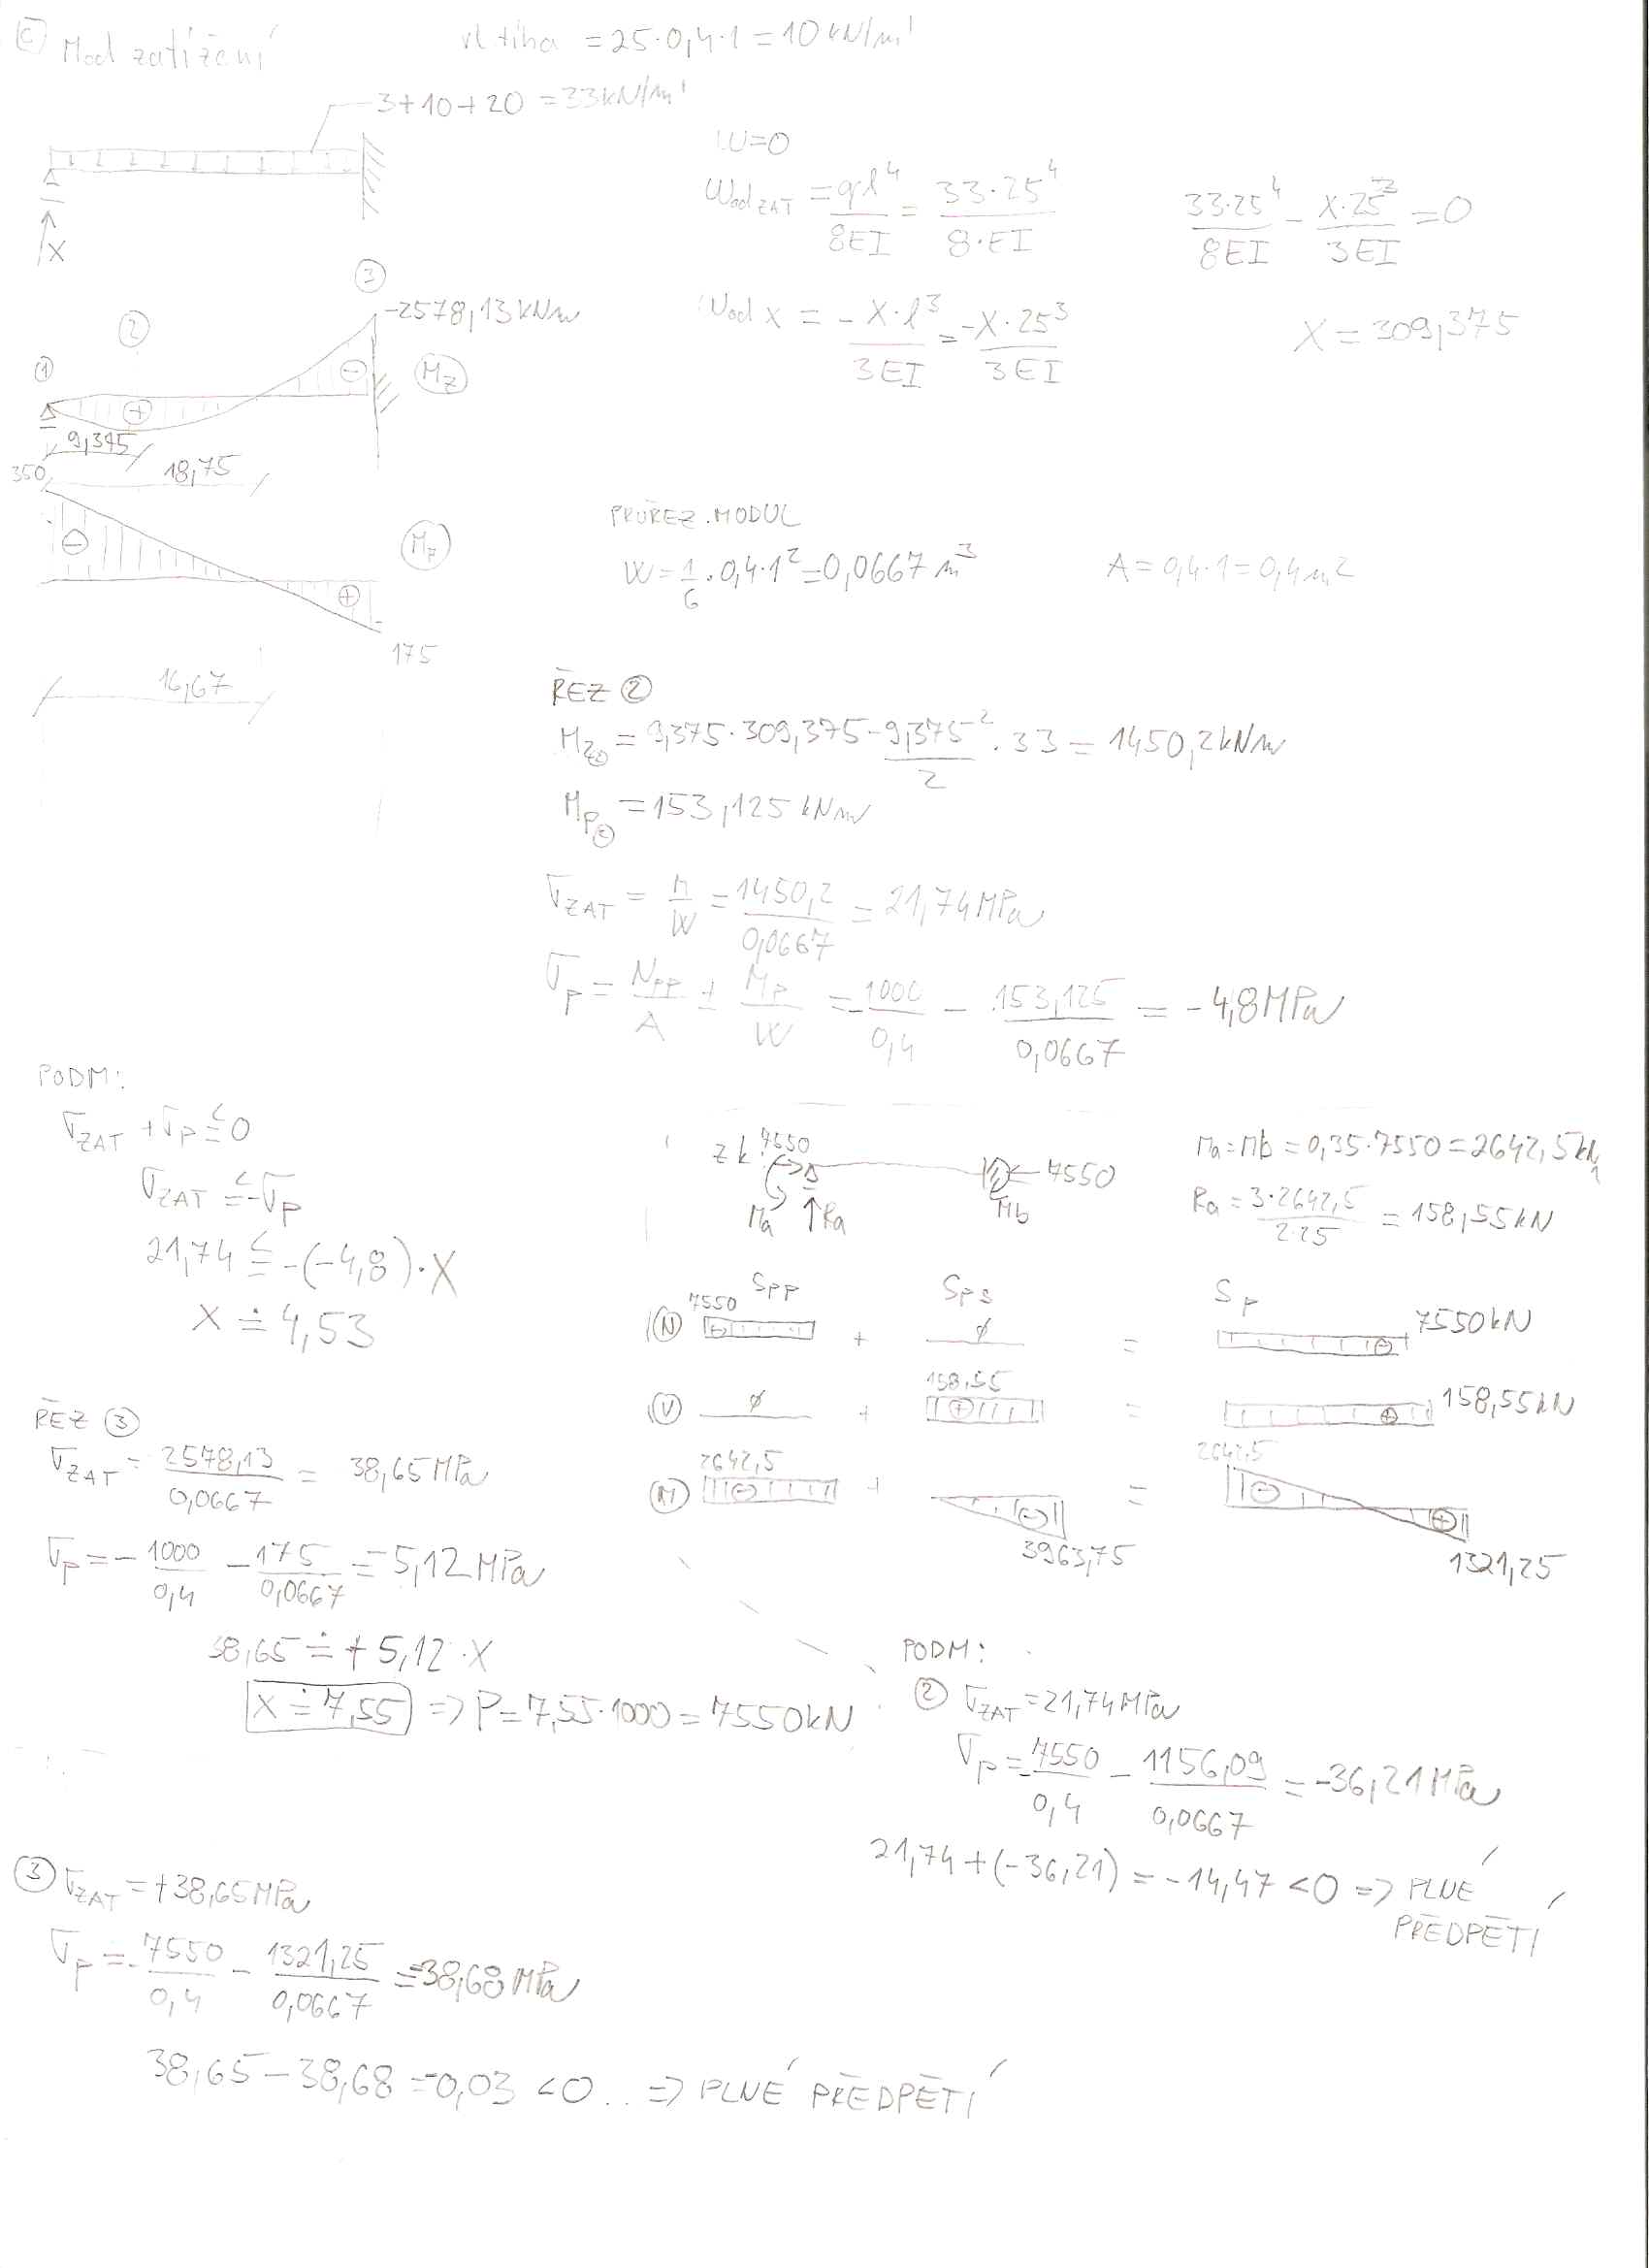 c) M od zatížení
vl tíha = 25·0,4·1 = 10 kN/m'
3+10+20 = 33 kN/m'
X
w=0
w od ZAT = ql⁴/8EI = 33·25⁴/8·EI
33·25⁴/8EI - X·25³/3EI = 0
w od X = -X·l³/3EI = -X·25³/3EI
X = 309,375
① ② ③
-2578,13 kNm
+ -
Mz
9,375
18,75
350
-
+
175
16,67
PRŮŘEZ. MODUL
W = 1/6 · 0,4·1² = 0,0667 m³
A = 0,4·1 = 0,4 m²
ŘEZ ②
Mz② = 9,375·309,375 - 9,375²/2 · 33 = 1450,2 kNm
Mp② = 153,125 kNm
σ ZAT = M/W = 1450,2/0,0667 = 21,74 MPa
σp = Npp/A ± Mp/W = -1000/0,4 - 153,125/0,0667 = -4,8 MPa
PODM:
σ ZAT + σp ≤ 0
σ ZAT ≤ -σp
21,74 ≤ -(-4,8)·X
X ≐ 4,53
zk:
7550
7550
Ma
Ra
Mb
Ma = Mb = 0,35·7550 = 2642,5 kN
Ra = 3·2642,5/2·25 = 158,55 kN
Spp Sps Sp
N 7550 - + ø = - 7550 kN
V ø + 158,55 + = + 158,55 kN
M 2642,5 - + - 3963,75 = 2642,5 - + 1321,25
ŘEZ ③
σ ZAT = 2578,13/0,0667 = 38,65 MPa
σp = -1000/0,4 - 175/0,0667 = -5,12 MPa
38,65 ≐ +5,12·X
X ≐ 7,55 => P = 7,55·1000 = 7550 kN
PODM:
② σ ZAT = 21,74 MPa
σp = -7550/0,4 - 1156,09/0,0667 = -36,21 MPa
21,74 + (-36,21) = -14,47 < 0 => PLNÉ
PŘEDPĚTÍ
③ σ ZAT = +38,65 MPa
σp = -7550/0,4 - 1321,25/0,0667 = -38,68 MPa
38,65 - 38,68 = -0,03 < 0 .. => PLNÉ PŘEDPĚTÍ